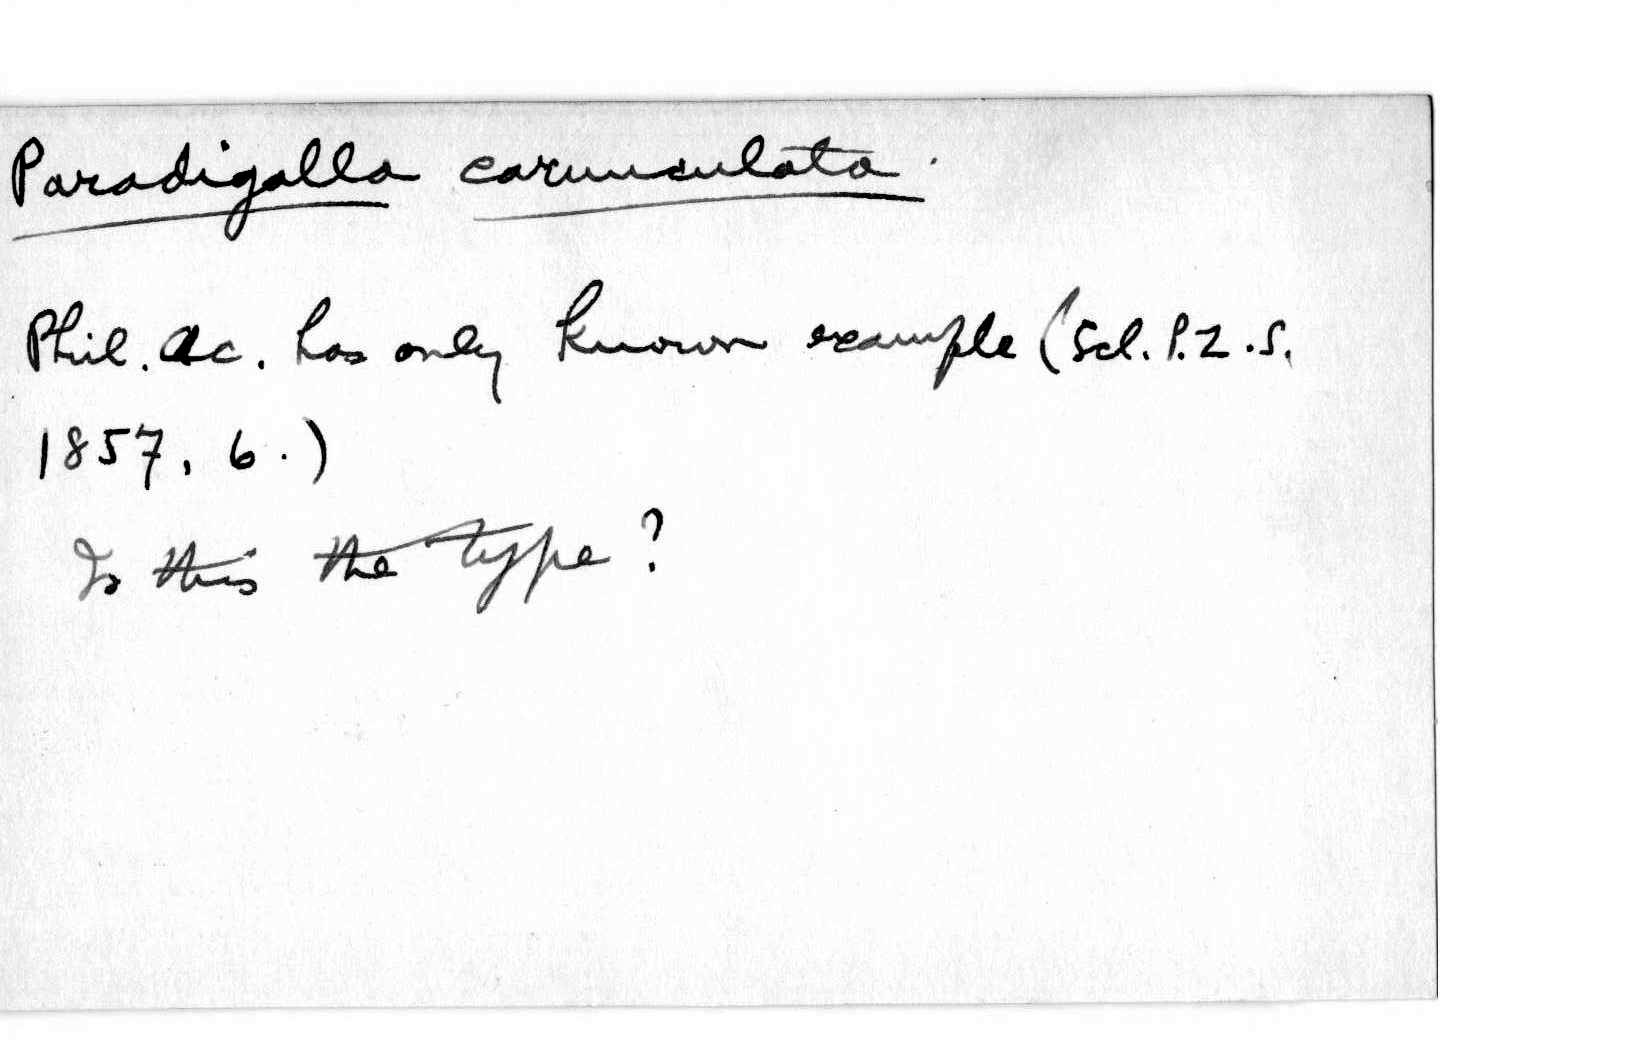 Paradigalla carunculata.
Phil. Ac. has only known example (Scl. P.Z.S.
1857, 6.)
Is this the type?